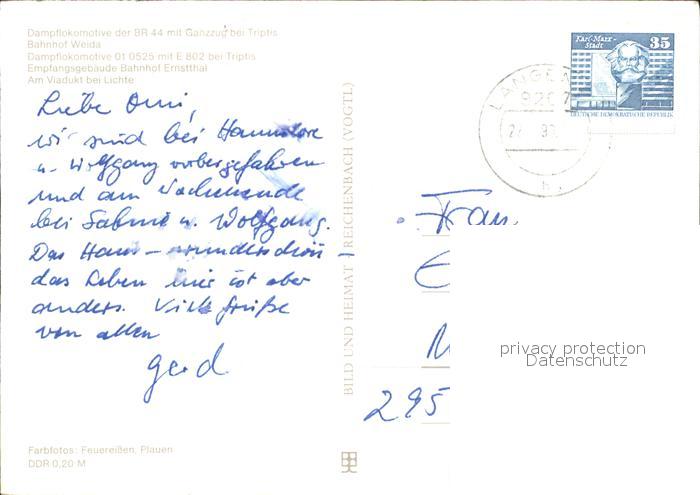 Dampflokomotive der BR 44 mit Ganzzug bei Triptis
Bahnhof Weida
Dampflokomotive 01 0525 mit E 802 bei Triptis
Empfangsgebäude Bahnhof Ernstthal
Am Viadukt bei Lichte
Liebe Omi,
wir sind bei Hannelore
u. Wolfgang vorbergefahren
und am Wochenende
bei Sabine u. Wolfgang.
Das Haus – wunderschön
das Leben hier ist aber
anders. Viele Grüße
von allen
Gerd
Farbfotos: Feuereißen, Plauen
DDR 0,20 M
BILD UND HEIMAT REICHENBACH (VOGTL)
Karl-Marx-
Stadt
35
DEUTSCHE DEMOKRATISCHE REPUBLIK
LANGEN
Frau
M
295
privacy protection
Datenschutz